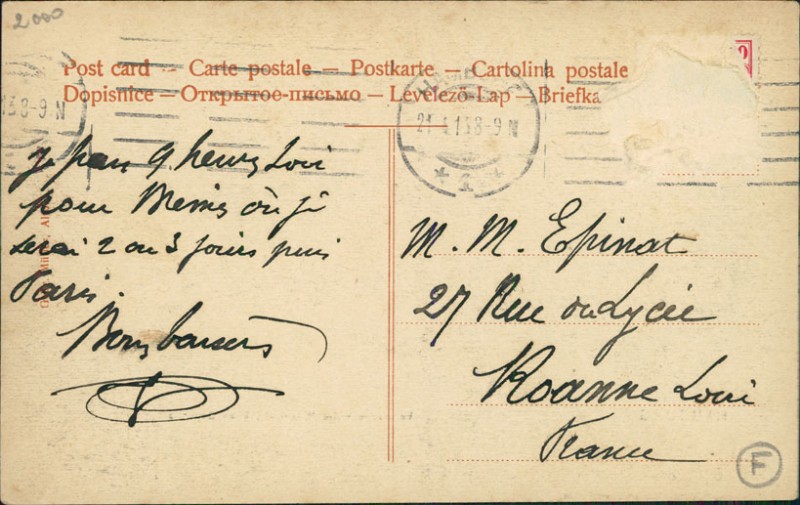 2000
Post card – Carte postale – Postkarte – Cartolina postale
Dopisnice – Открытое-письмо – Levelező-Lap – Briefka
13 8-9 N
21 4 13 8-9 N
* 1 *
2
Je pars 9 heures soir
pour Brême où je
serai 2 ou 3 jours puis
Paris.
Bons baisers
M. M. Epinat
27 Rue du Lycée
Roanne Loire
France
F